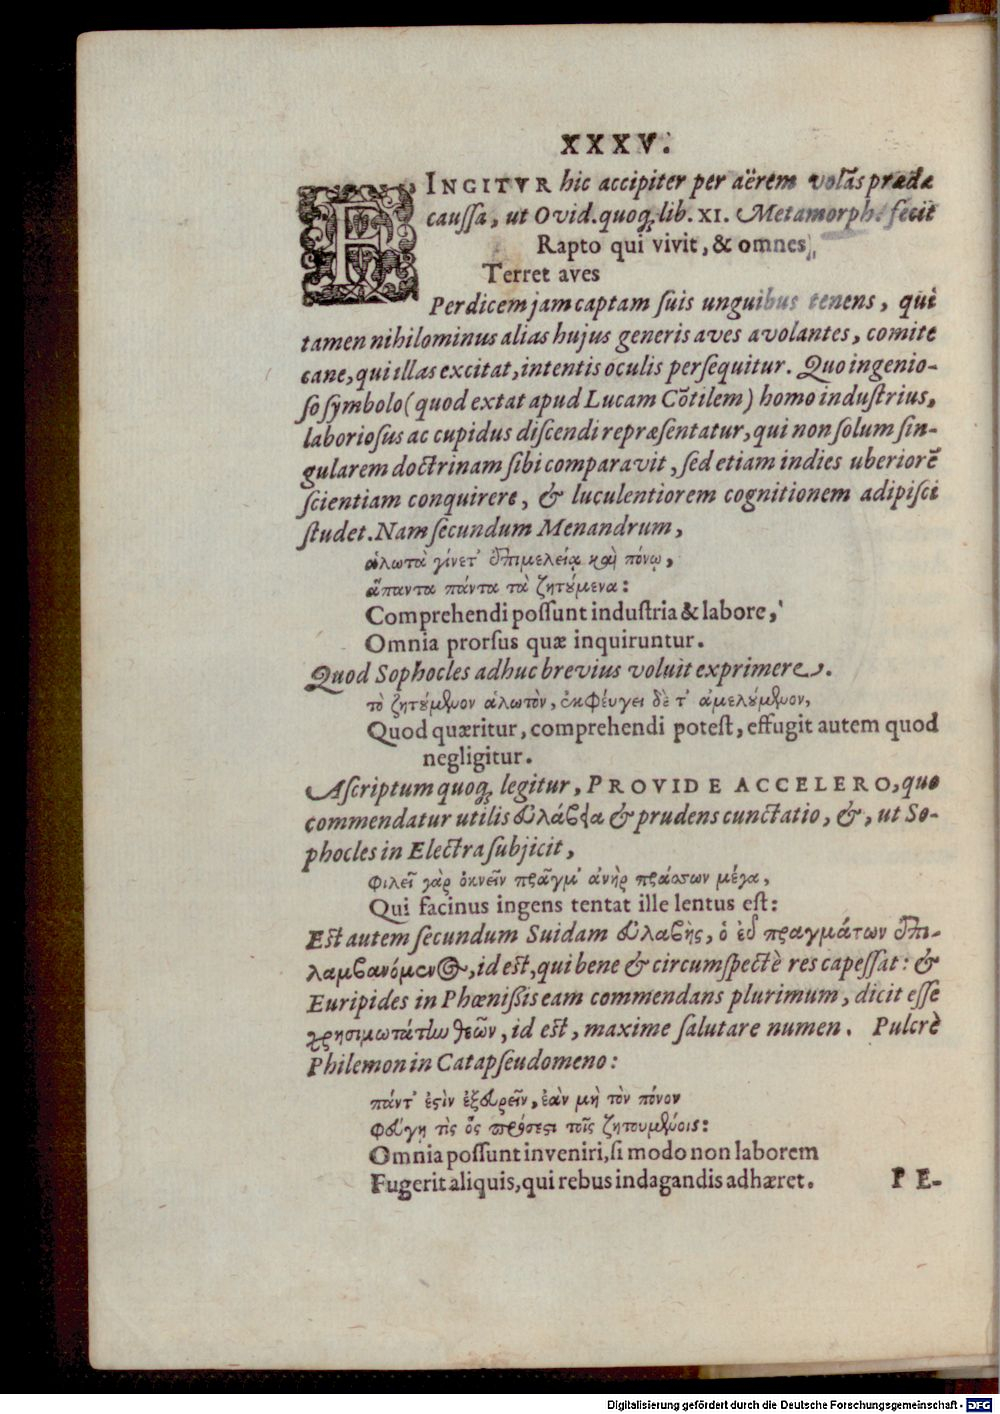 XXXV.
FINGITVR hic accipiter per aërem volãs prædæ
caussa, ut Ovid. quoq; lib. XI. Metamorph. fecit
Rapto qui vivit, & omnes
Terret aves
Perdicem jam captam suis unguibus tenens, qui
tamen nihilominus alias hujus generis aves avolantes, comite
cane, qui illas excitat, intentis oculis persequitur. Quo ingenio-
so symbolo (quod extat apud Lucam Cõtilem) homo industrius,
laboriosus ac cupidus discendi repræsentatur, qui non solum sin-
gularem doctrinam sibi comparavit, sed etiam indies uberiorẽ
scientiam conquirere, & luculentiorem cognitionem adipisci
studet. Nam secundum Menandrum,
ἁλωτὰ γίνετ' ἐπιμελείᾳ καὶ πόνῳ,
ἅπαντα πάντα τὰ ζητούμενα:
Comprehendi possunt industria & labore,
Omnia prorsus quæ inquiruntur.
Quod Sophocles adhuc brevius voluit exprimere.
τὸ ζητούμενον ἁλωτὸν, ἐκφέυγει δὲ τ' ἀμελούμενον,
Quod quæritur, comprehendi potest, effugit autem quod
negligitur.
Ascriptum quoq; legitur, PROVIDE ACCELERO, quo
commendatur utilis ἐυλάβεια & prudens cunctatio, &, ut So-
phocles in Electra subjicit,
φιλεῖ γὰρ ὀκνεῖν πρᾶγμ' ἀνὴρ πράσσων μέγα,
Qui facinus ingens tentat ille lentus est:
Est autem secundum Suidam ἐυλαβὴς, ὁ ἐυ πραγμάτων ἐπι-
λαμβανόμενος, id est, qui bene & circumspectè res capessat: &
Euripides in Phœnissis eam commendans plurimum, dicit esse
χρησιμωτάτην θεῶν, id est, maxime salutare numen. Pulcrè
Philemon in Catapseudomeno:
πάντ' ἐστὶν ἐξευρεῖν, ἐὰν μὴ τὸν πόνον
φεύγῃ τὶς ὃς πρόσεστι τοῖς ζητουμένοις:
Omnia possunt inveniri, si modo non laborem
Fugerit aliquis, qui rebus indagandis adhæret.
PE-
Digitalisierung gefördert durch die Deutsche Forschungsgemeinschaft - DFG